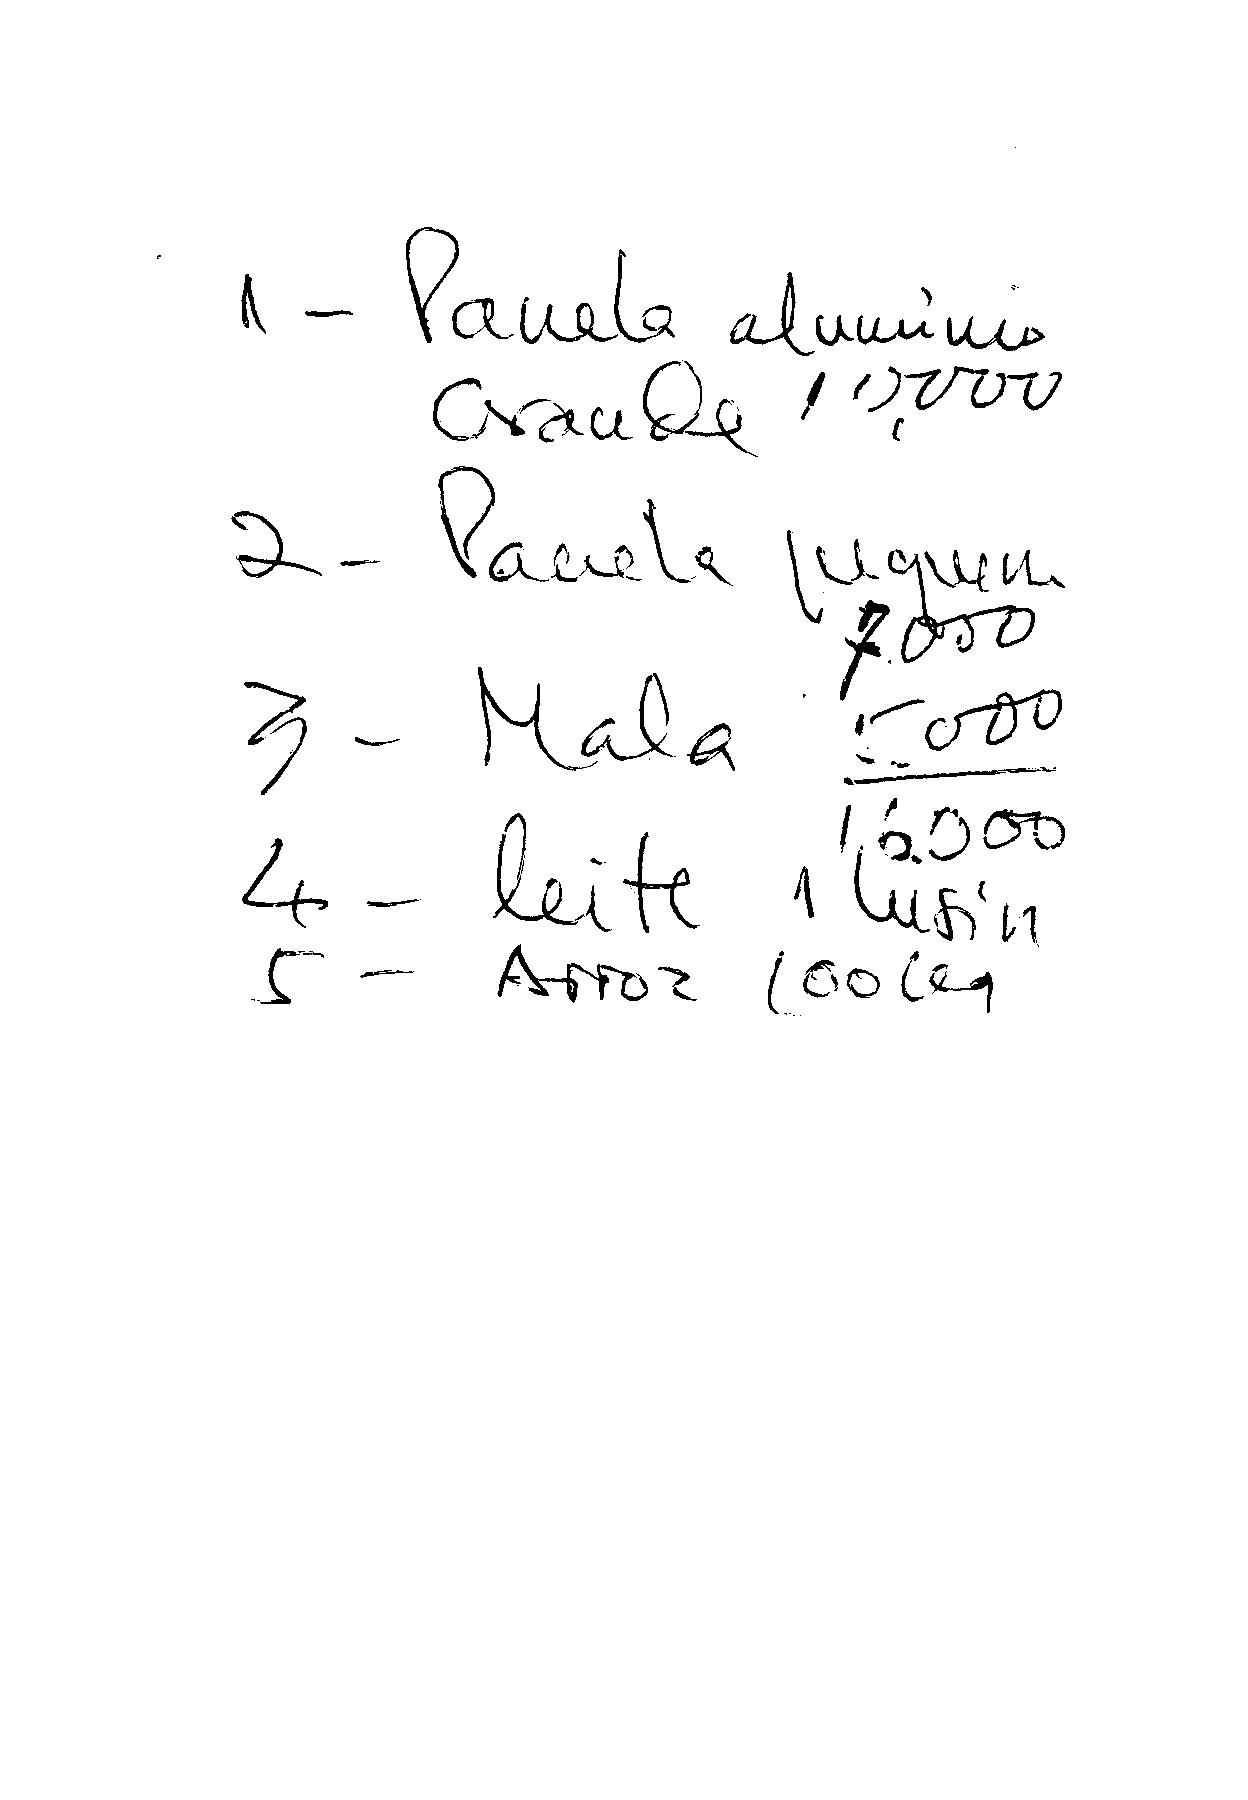 1 - Panela alumínio
Grande 10,000
2 - Panela pequena
7.000
3 - Mala 5.000
16.000
4 - leite 1
5 - Arroz 100